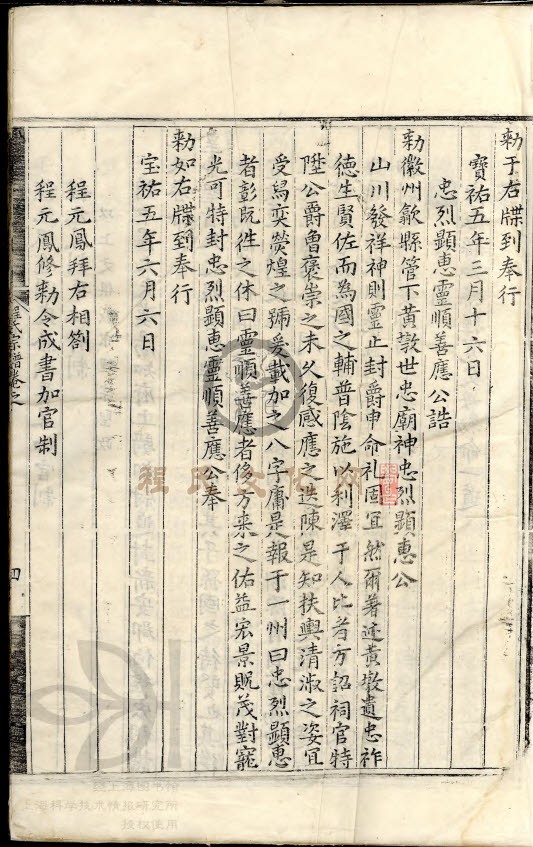 勅于右牒到奉行
寶祐五年三月十六日
忠烈顯惠靈順善應公誥
勅徽州歙縣管下黃墩世忠廟神忠烈顯惠公
山川發祥神則靈止封爵申命礼固宜然爾著迹黃墩遺忠祚
德生賢佐而為國之輔普陰施以利澤于人比者方詔祠官特
陞公爵魯褒崇之未久復感應之迭陳是知扶輿清淑之姿宜
受舃奕熒煌之號爰載加之八字庸是報于一州曰忠烈顯惠
者彰既徃之休曰靈順善應者侈方来之佑益宏景貺茂對寵
光可特封忠烈顯惠靈順善應公奉
勅如右牒到奉行
宝祐五年六月六日
程元鳳拜右相劄
程元鳳修勅令成書加官制
程氏宗譜卷之
四
程氏文化网
上海图书馆
上海科学技术情报研究所
授权使用